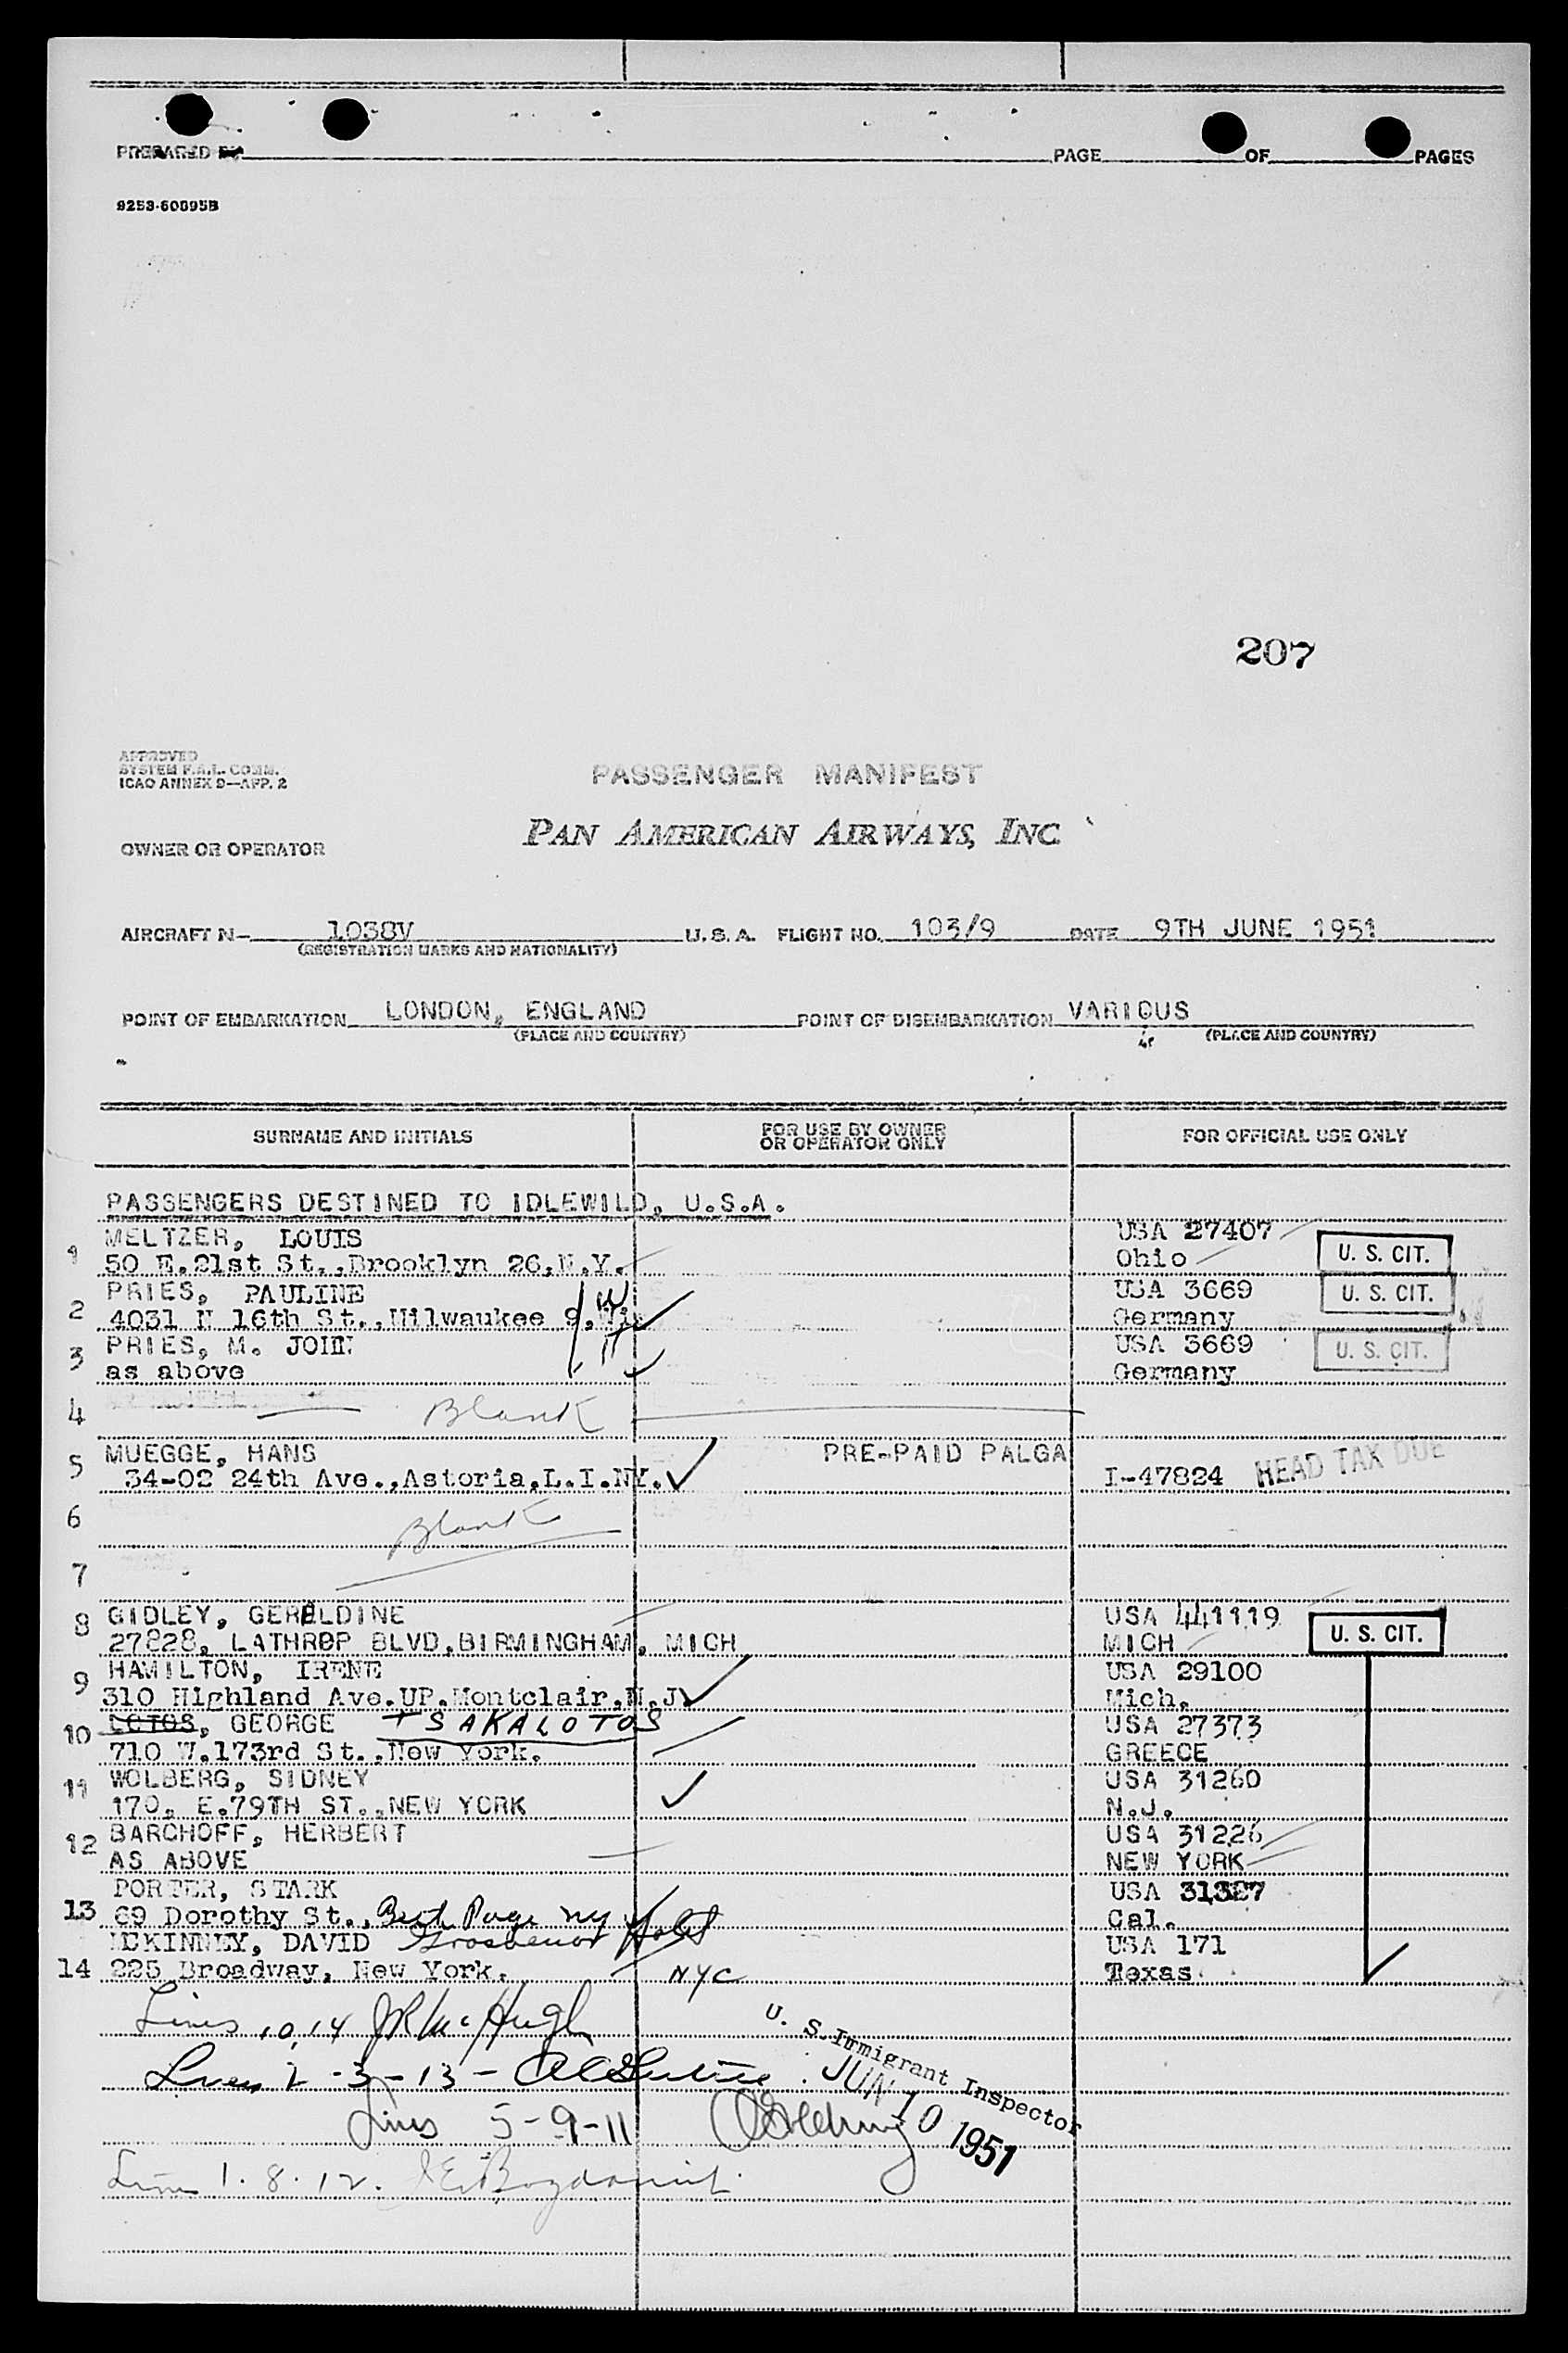 PREPARED BY PAGE OF PAGES
9253-60695B
207
APPROVED
SYSTEM F.A.L. COMM.
ICAO ANNEX 9—APP. 2
PASSENGER MANIFEST
OWNER OR OPERATOR
PAN AMERICAN AIRWAYS, INC.
AIRCRAFT N— 1038V U.S.A. FLIGHT NO. 103/9 DATE 9TH JUNE 1951
(REGISTRATION MARKS AND NATIONALITY)
POINT OF EMBARKATION LONDON, ENGLAND POINT OF DISEMBARKATION VARIOUS
(PLACE AND COUNTRY) (PLACE AND COUNTRY)
SURNAME AND INITIALS FOR USE BY OWNER OR OPERATOR ONLY FOR OFFICIAL USE ONLY
PASSENGERS DESTINED TO IDLEWILD, U.S.A.
1 MELTZER, LOUIS USA 27407
50 E.21st St.,Brooklyn 26,N.Y. Ohio U. S. CIT.
2 PRIES, PAULINE USA 3669 U. S. CIT.
4031 N 16th St.,Milwaukee 9,Wis Germany
3 PRIES, M. JOHN USA 3669 U. S. CIT.
as above Germany
4 Blank
5 MUEGGE, HANS PRE-PAID PALGA
34-02 24th Ave.,Astoria,L.I.NY. I-47824 HEAD TAX DUE
6 Blank
7
8 GIDLEY, GERALDINE USA 441119
27828, LATHROP BLVD,BIRMINGHAM, MICH MICH U. S. CIT.
9 HAMILTON, IRENE USA 29100
310 Highland Ave.UP.Montclair,N.J. Mich.
10 LOTOS, GEORGE TSAKALOTOS USA 27373
710 W.173rd St.,New York. GREECE
11 WOLBERG, SIDNEY USA 31260
170, E.79TH ST.,NEW YORK N.J.
12 BARCHOFF, HERBERT USA 31226
AS ABOVE NEW YORK
PORTER, STARK USA 31327
13 69 Dorothy St., Beth Page NY Cal.
MCKINNEY, DAVID Grosvenor Hotel USA 171
14 225 Broadway, New York. NYC Texas
Lines 10, 14 JR McHugh
Lines 2 - 3 - 13 -
U. S. Immigrant Inspector
JUN 10 1951
Lines 5 - 9 - 11
Lines 1. 8. 12.